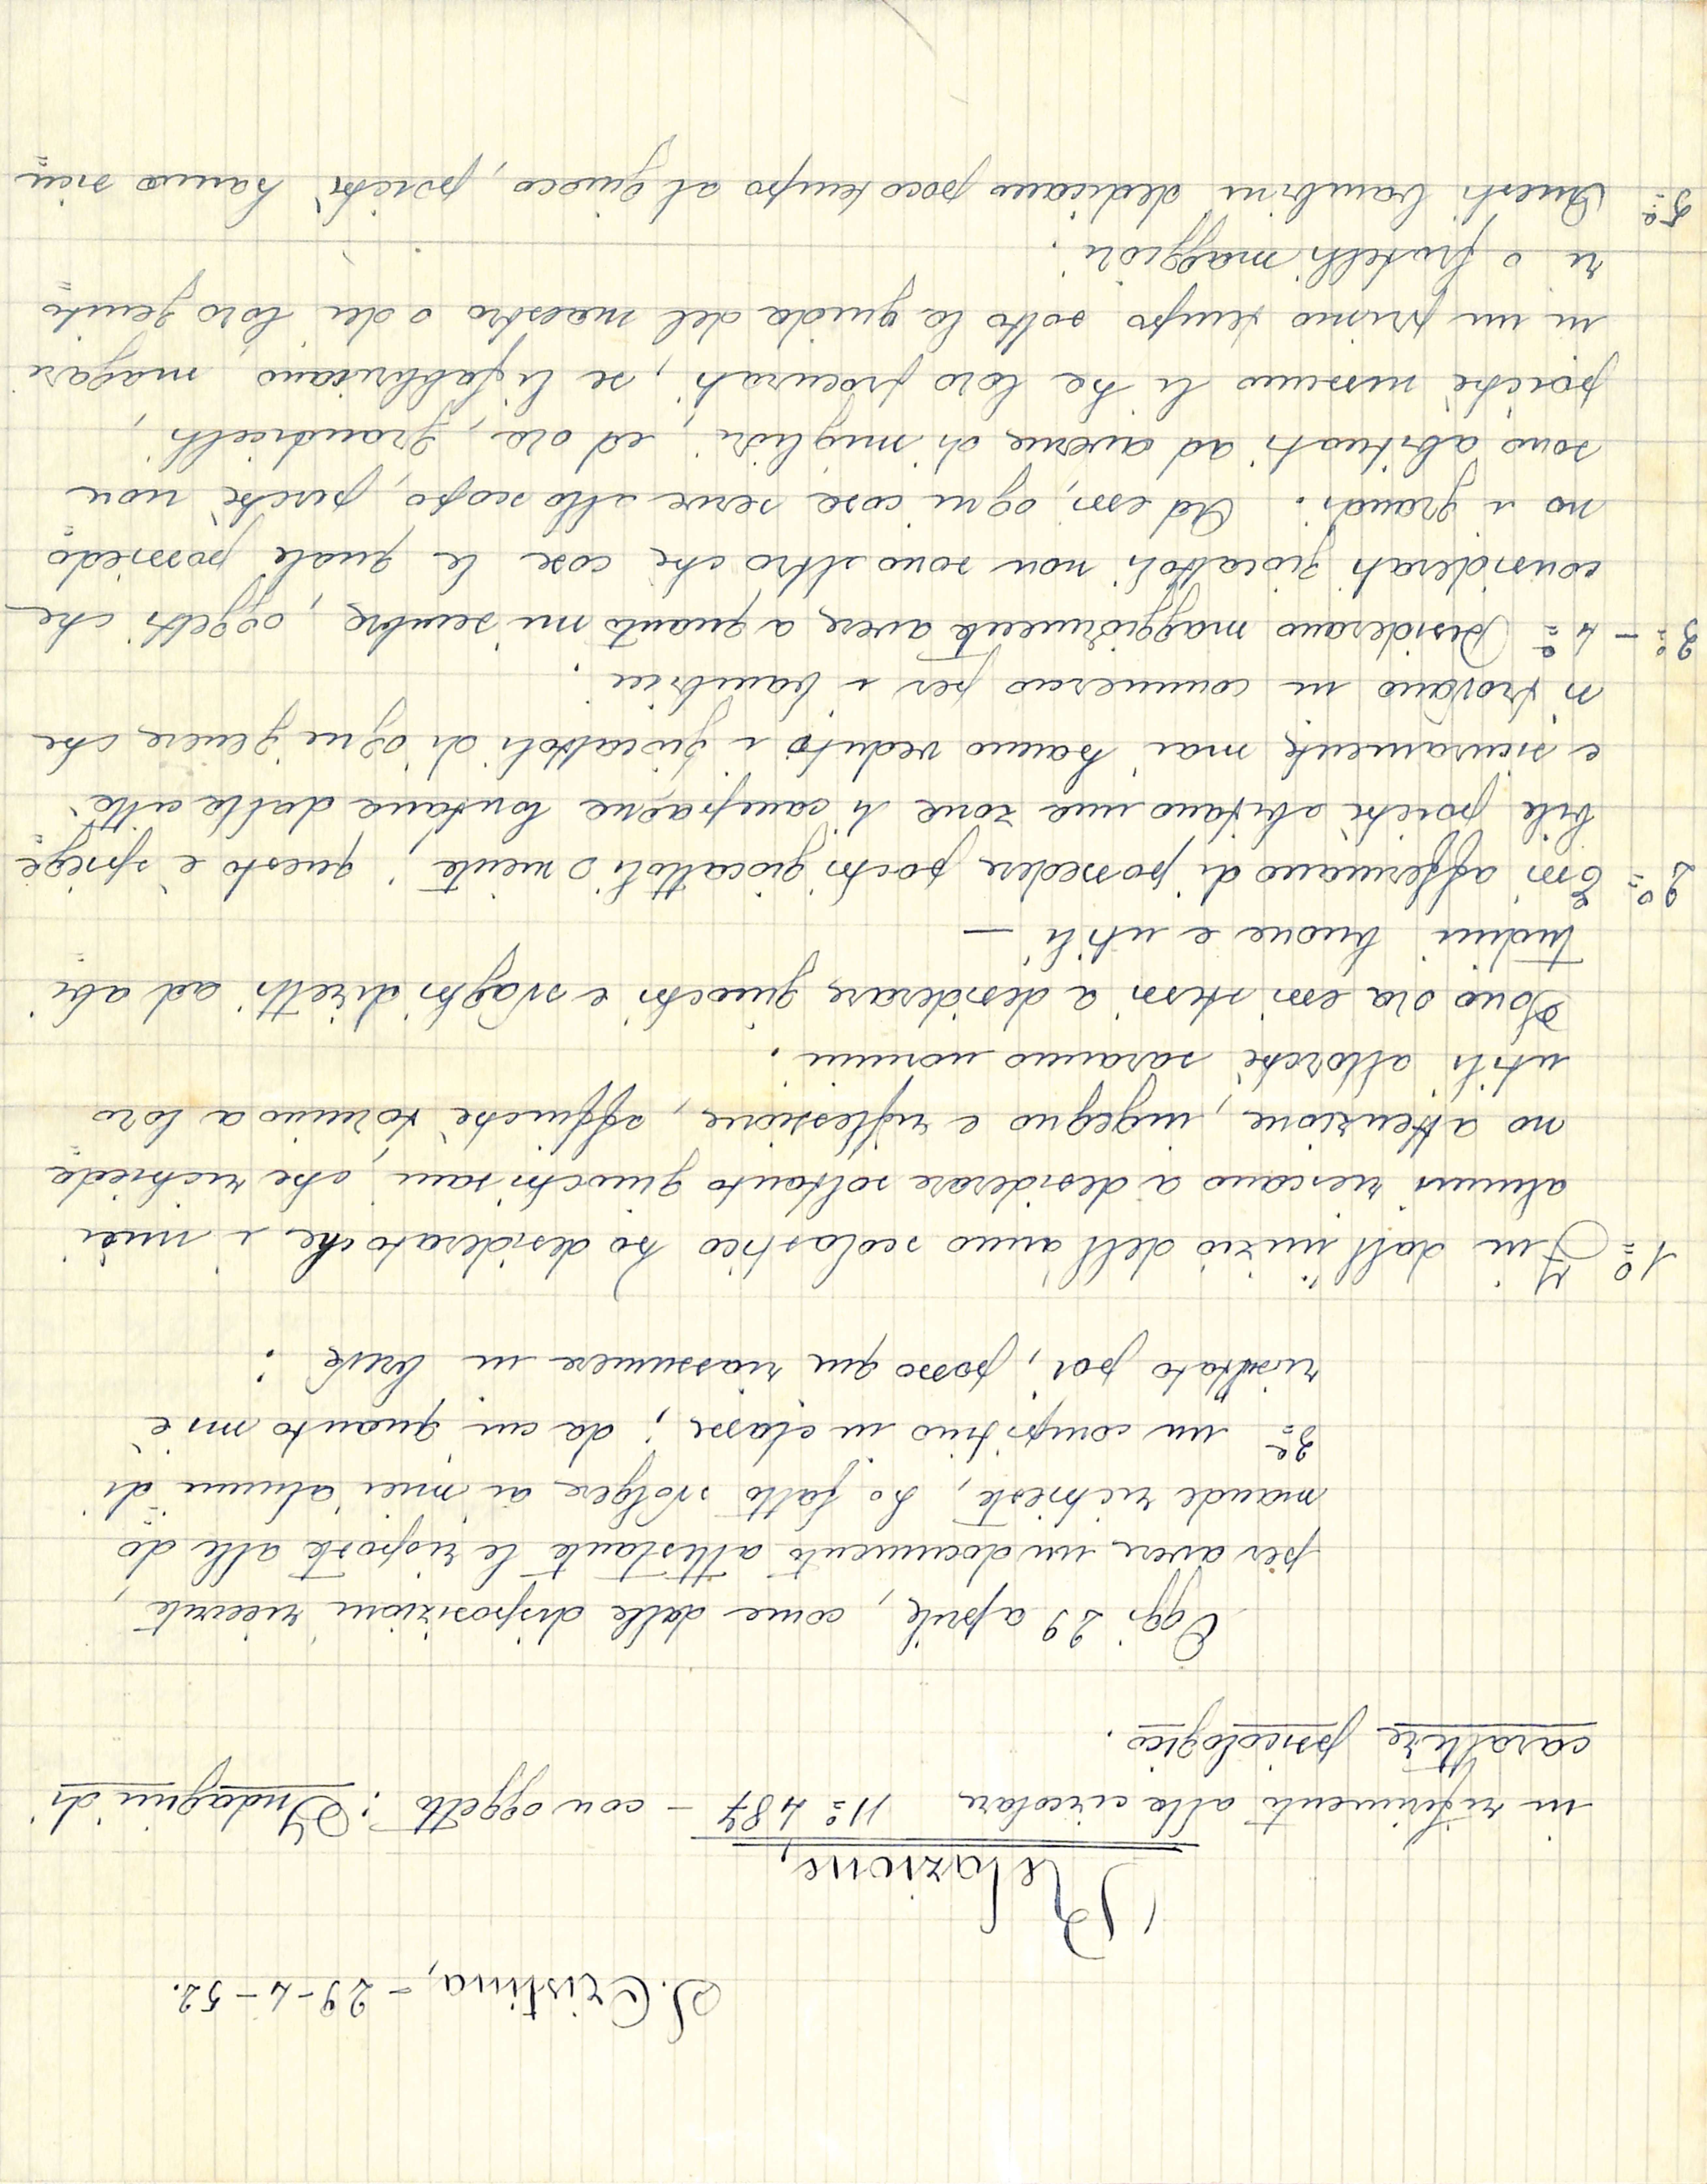 S. Cristina, - 29-4-52.
Relazione,
in riferimento alla circolare N° 487 - con oggetto: Indagini di
carattere psicologico.
Oggi 29 aprile, come dalle disposizioni ricevute,
per avere un documento attestante le risposte alle do
mande richieste, ho fatto svolgere ai miei alunni di
3ª un compitino in classe; da cui quanto mi è
risultato poi, posso qui riassumere in breve:
1° Fin dall'inizio dell'anno scolastico ho desiderato che i miei
alunni riescano a desiderare soltanto giuochi sani, che richieda
no attenzione, ingegno e riflessione, affinchè tornino a loro
utili allorchè saranno uomini.
Sono ora essi stessi a desiderare giuochi e svaghi diretti ad abi
tudini buone e utili —
2° Essi affermano di possedere pochi giocattoli o niente; questo è spiega
bile poichè abitano una zona di campagna lontana dalla città
e sicuramente mai hanno veduto i giocattoli di ogni genere che
si trovano in commercio per i bambini.
3° - 4° Desiderano maggiormente avere, a quanto mi sembra, oggetti che
considerati giocattoli non sono altro che cose le quali possiedo
no i grandi. Ad essi, ogni cosa serve allo scopo, perchè non
sono abituati ad averne di migliori, ed ora, grandicelli,
poichè nessuno li ha loro procurati, se li fabbricano magari
in un primo tempo sotto la guida del maestro o dei loro genito
ri o fratelli maggiori.
5° Questi bambini dedicano poco tempo al giuoco, poichè hanno sicu